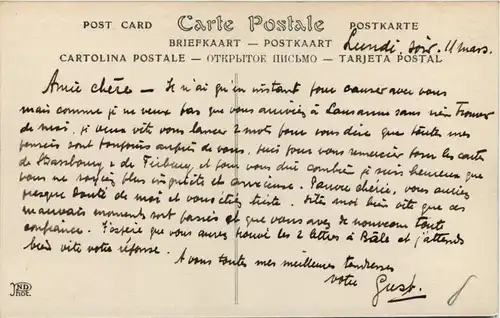 POST CARD Carte Postale POSTKARTE
BRIEFKAART — POSTKAART
CARTOLINA POSTALE — ОТКРЫТОЕ ПИСЬМО — TARJETA POSTAL
Lundi soir 11 mars.
Amie chère — Je n'ai qu'un instant pour causer avec vous
mais comme je ne veux pas que vous arriviez à Lausanne sans rien trouver
de moi, je veux vite vous lancer 2 mots pour vous dire que toutes mes
pensées sont toujours auprès de vous, puis pour vous remercier pour les cartes
de Strasbourg, de Fribourg, et pour vous dire combien je suis heureux que
vous ne soyiez plus inquiète et anxieuse. Pauvre chérie, vous aviez
presque douté de moi et vous étiez triste. Dites moi bien vite que ces
mauvais moments sont passés et que vous avez de nouveau toute
confiance. J'espère que vous aurez trouvé les 2 lettres à Bâle et j'attends
bien vite votre réponse.
A vous toutes mes meilleures tendresses
votre Gust.
ND Phot.